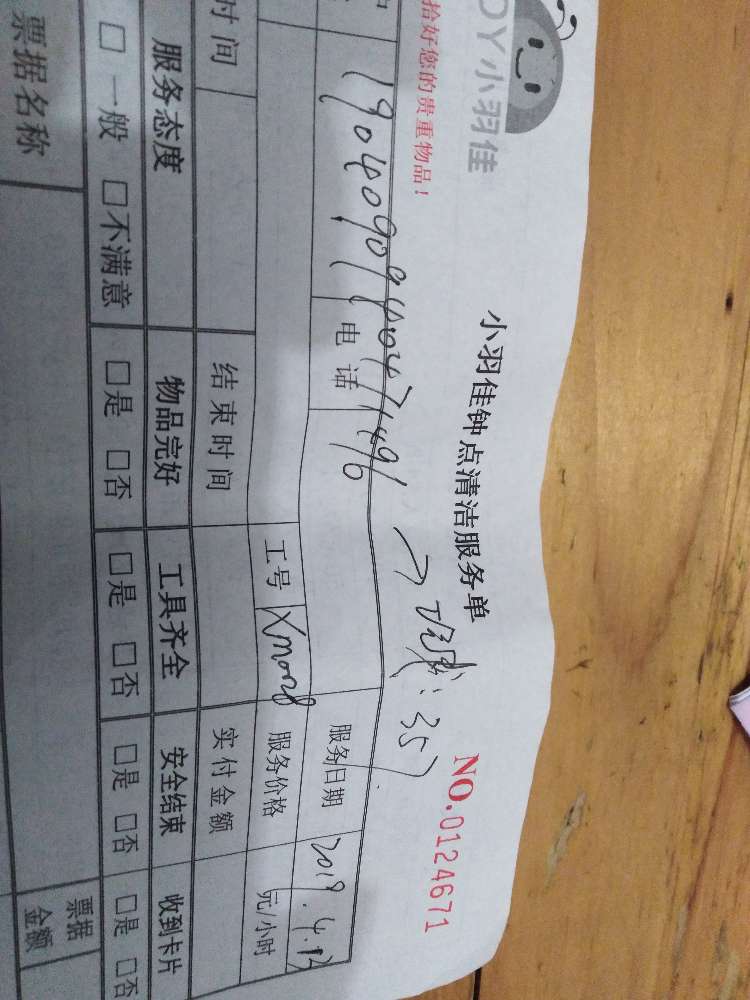 OY小羽佳
小羽佳钟点清洁服务单
拾好您的贵重物品！
NO.0124671
电话
服务日期 2019.4.13
工号
服务价格 元/小时
时间
结束时间
实付金额
服务态度 物品完好 工具齐全 安全结束 收到卡片
□一般 □不满意 □是 □否 □是 □否 □是 □否 □是 □否
票据名称
票据
金额